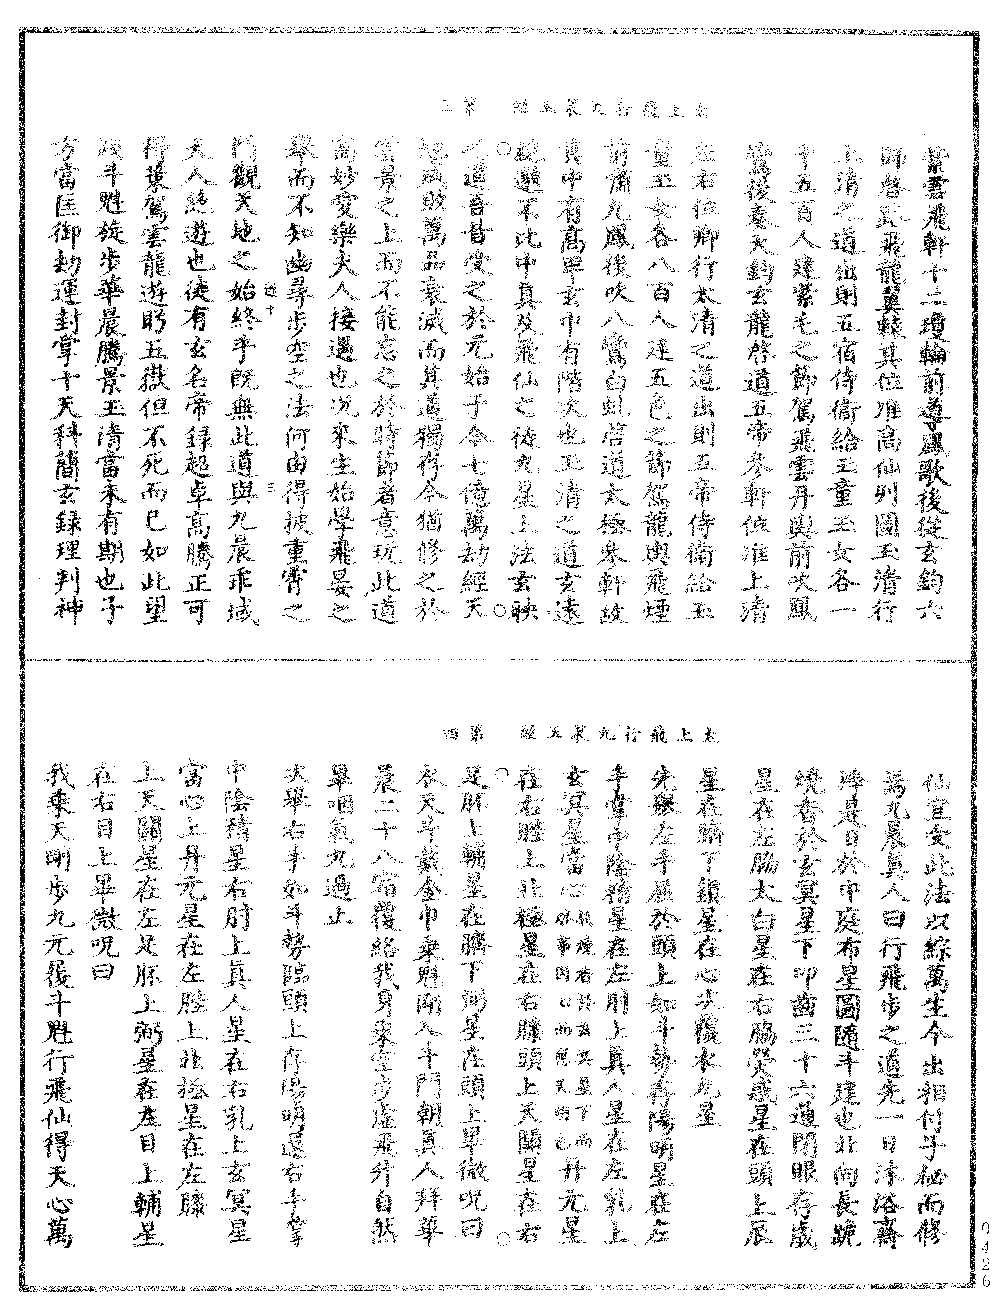 太上飛行九晨玉經 第三
紫雲飛軒十二瓊輪前導鳳歌後從玄鈞六
師啓路飛龍翼轅其位准高仙列圖玉清行
上清之道出則五宿侍衞給玉童玉女各一
千五百人建紫毛之節駕飛雲丹輿前吹鳳
鸞後奏天鈞玄龍啓道五帝參軒位准上清
左右位卿行太清之道出則五帝侍衞給玉
童玉女各八百人建五色之節駕龍輿飛煙
前嘯九鳳後吹八鸞白虬啓道太極參軒故
真中有高卑玄中有階次也玉清之道玄遠
絕邈不比中真及飛仙之徒九星上法玄映
之道吾昔受之於元始于今七億萬劫經天
地成敗萬品衰滅而其道獨存今猶修之於
雲景之上而不能忘之於時節者意玩此道
高妙愛樂夫人接遇也况來生始學飛晏之
舉而不知幽尋步空之法何由得披重霄之
門觀天地之始終乎既無此道與九晨乖域
迹十 三
天人絕遊也徒有玄名帝錄超卓高騰正可
得乘駕雲龍遊眄五嶽但不死而已如此望
段斗魁旋步華晨騰景玉清當來有期也子
方當匡御劫運封掌十天科簡玄錄理判神
太上飛行九晨玉經 第四
仙宜受此法以綜萬生今出相付子祕而修
焉九晨真人曰行飛步之道先一日沐浴齋
淨是日於中庭布星圖隨斗建也北向長跪
燒香於玄冥星下叩齒三十六通閉眼存歲
星在左脇太白星在右脇熒惑星在頭上辰
星在臍下鎮星在心次覆衣九星
先舉左手屈於頭上如斗勢存陽明星在左
手掌中陰精星在左肘上真人星在左乳上
玄冥星當心 丹元星
在右膝上北極星在右膝頭上天關星在右
足胵上輔星在臍下弼星在頭上畢微呪曰
衣天斗戴金巾乘魁剛入斗門朝真人拜華
晨二十八宿覆絡我身乘空步虛飛升自然
畢咽氣九過止
次舉右手如斗勢臨頭上存陽明還右手掌
中陰精星右肘上真人星在右乳上玄冥星
當心上丹元星在左膝上北極星在左膝
上天關星在左足胵上弼星在左目上輔星
在右目上畢微呪曰
我乘天剛步九元履斗魁行飛仙得天心萬
0426